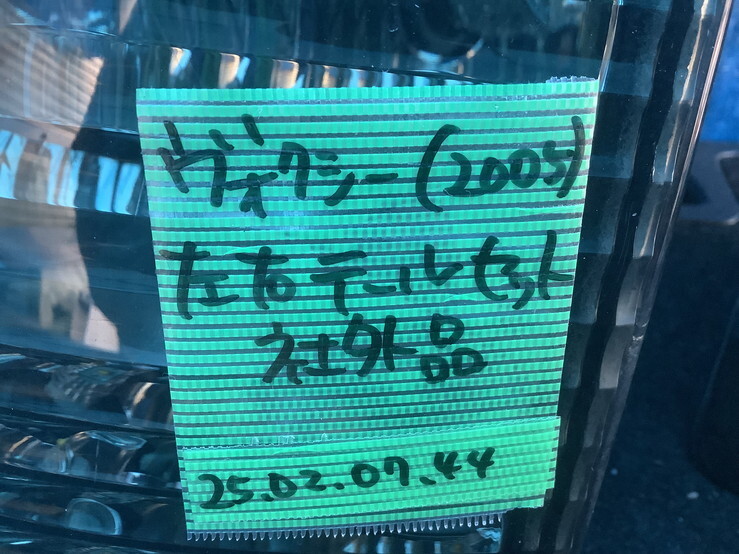 ヴォクシー(2005)
左右テールセット
社外品
25.02.07.44